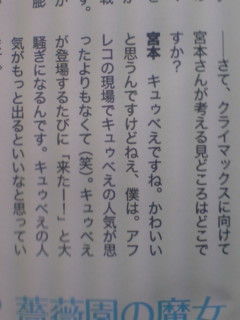 ――さて、クライマックスに向けて
宮本さんが考える見どころはどこで
すか？
宮本　キュゥべえですね。かわいい
と思うんですけどねえ、僕は。アフ
レコの現場でキュゥべえの人気が思
ったよりもなくて（笑）。キュゥべえ
が登場するたびに「来たー！」と大
騒ぎになるんです。キュゥべえの人
気がもっと出るといいなと思ってい
薔薇園の魔女